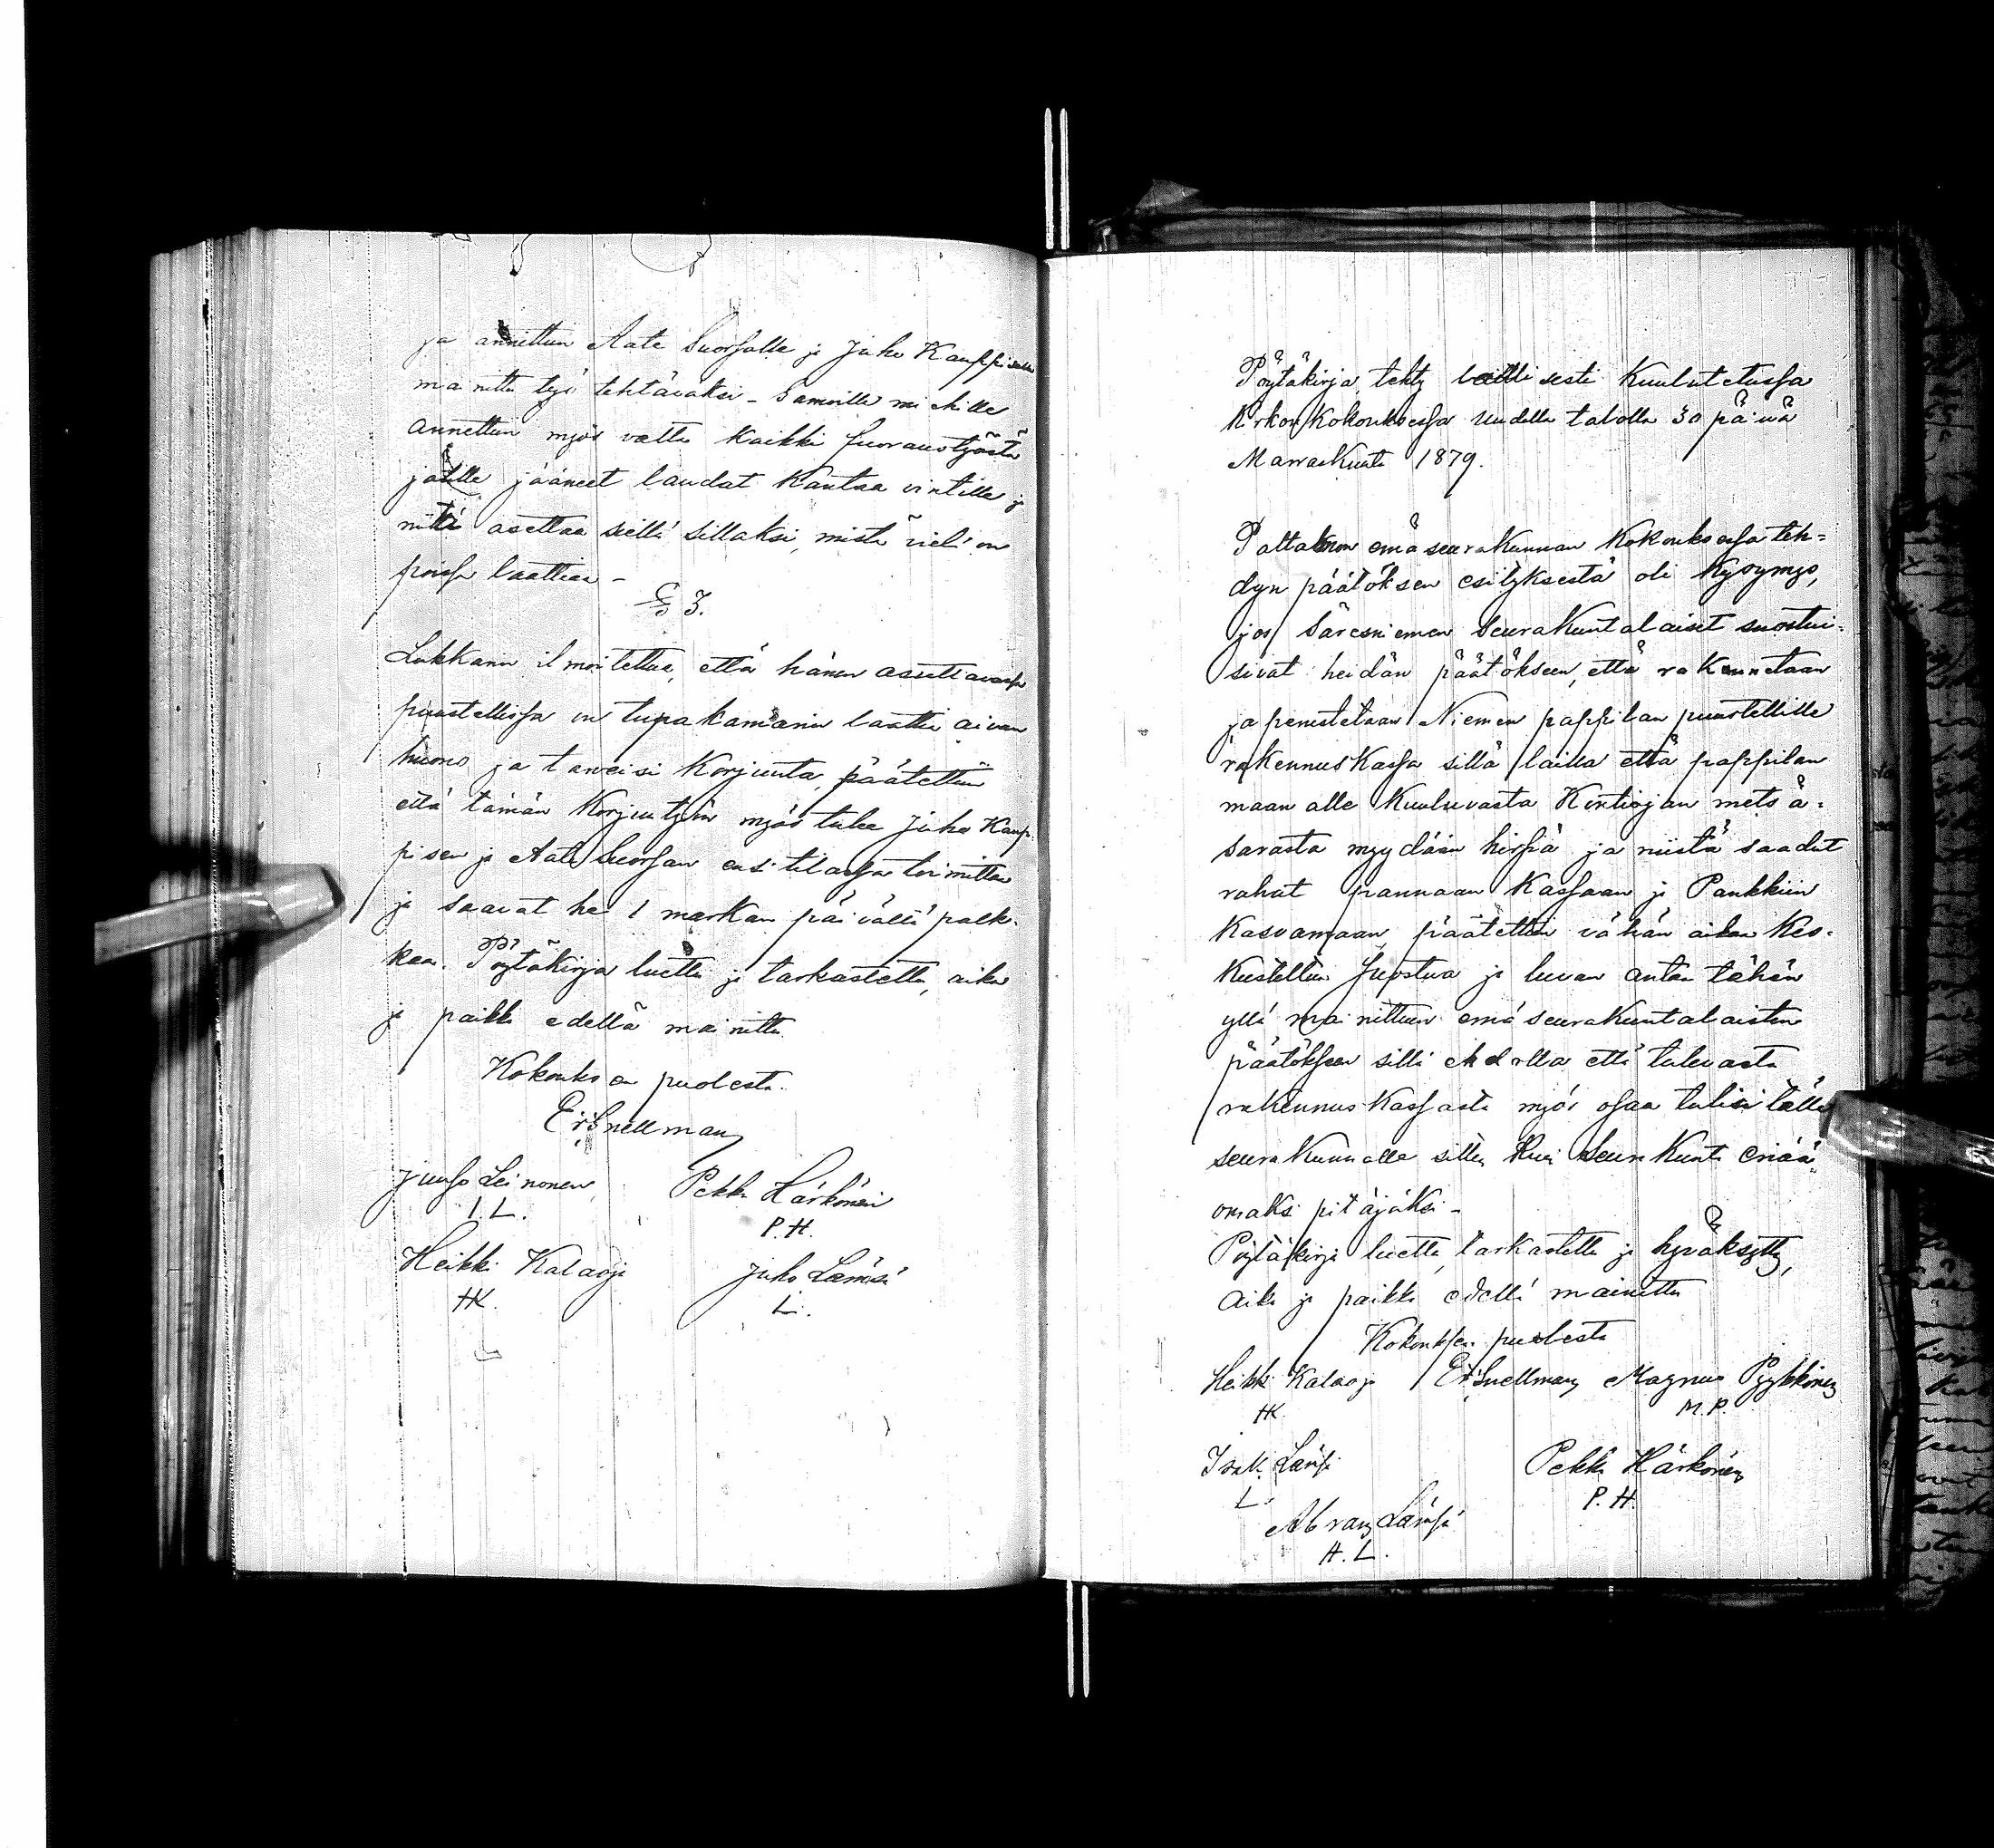 ja annettiin Aate Suorsalle ja Juho Kauppiselle
mainittu työ tehtäväksi - Samoille miehille
annettiin myös valta kaikki suoraustyöstä
jäälle jääneet laudat kantaa vintille ja
niitä asettaa siellä sillaksi, mistä vielä on
poissa laattiaa -
§ 3.
Lukkarin ilmoitettua, että hänen asuttavassa
puustellissa on tupakamarin laattia aivan
huono ja tarveisi korjuuta, päätettiin
että tämän korjuutyön myös tulee Juho Kaup-
pisen ja Aate Suorsan ensi tilassa toimittaa
ja saavat he 1 markan päivältä palk-
kaa. Pöytäkirja luettu ja tarkastettu, aika
ja paikka edellä mainittu.
Kokouksen puolesta.
Er. Snellman
Juuso Leinonen Pekka Härkönen
I. L. P. H.
Heikki Kalaoja Juho Lämsä
HK. L.
Pöytäkirja, tehty laillisesti kuulutetussa
Kirkonkokouksessa uudella talolla 30 päivä
Marraskuuta 1879.
Paltamon emäseurakunnan kokouksessa teh=
dyn päätöksen esityksestä oli kysymys,
jos Säresniemen seurakuntalaiset suostui-
sivat heidän päätökseen, että rakennetaan
ja perustetaan Niemen pappilan puustellille
rakennuskassa sillä lailla että pappilan
maan alle kuuluvasta Kintiojan metsä-
sarasta myydään hirsiä ja niistä saadut
rahat pannaan kassaan ja Pankkiin
kasvamaan, päätettiin vähän aikaa kes-
kusteltua suostua ja luvan antaa tähän
yllä mainittuun emäseurakuntalaisten
päätökseen sillä ehdolla että tulevasta
rakennuskassasta myös osaa tulisi tälle
seurakunnalle sillen kuin seurakunta eriää
omaksi pitäjäksi -
Pöytäkirja luettu, tarkastettu ja hyväksytty,
aika ja paikka edellä mainittu
Kokouksen puolesta
Heikki Kalaoja Er. Snellman Magnus Pyykkönen
HK. M. P.
Isak Lämsä Pekka Härkönen
L. P. H.
Abram Lämsä
H. L.